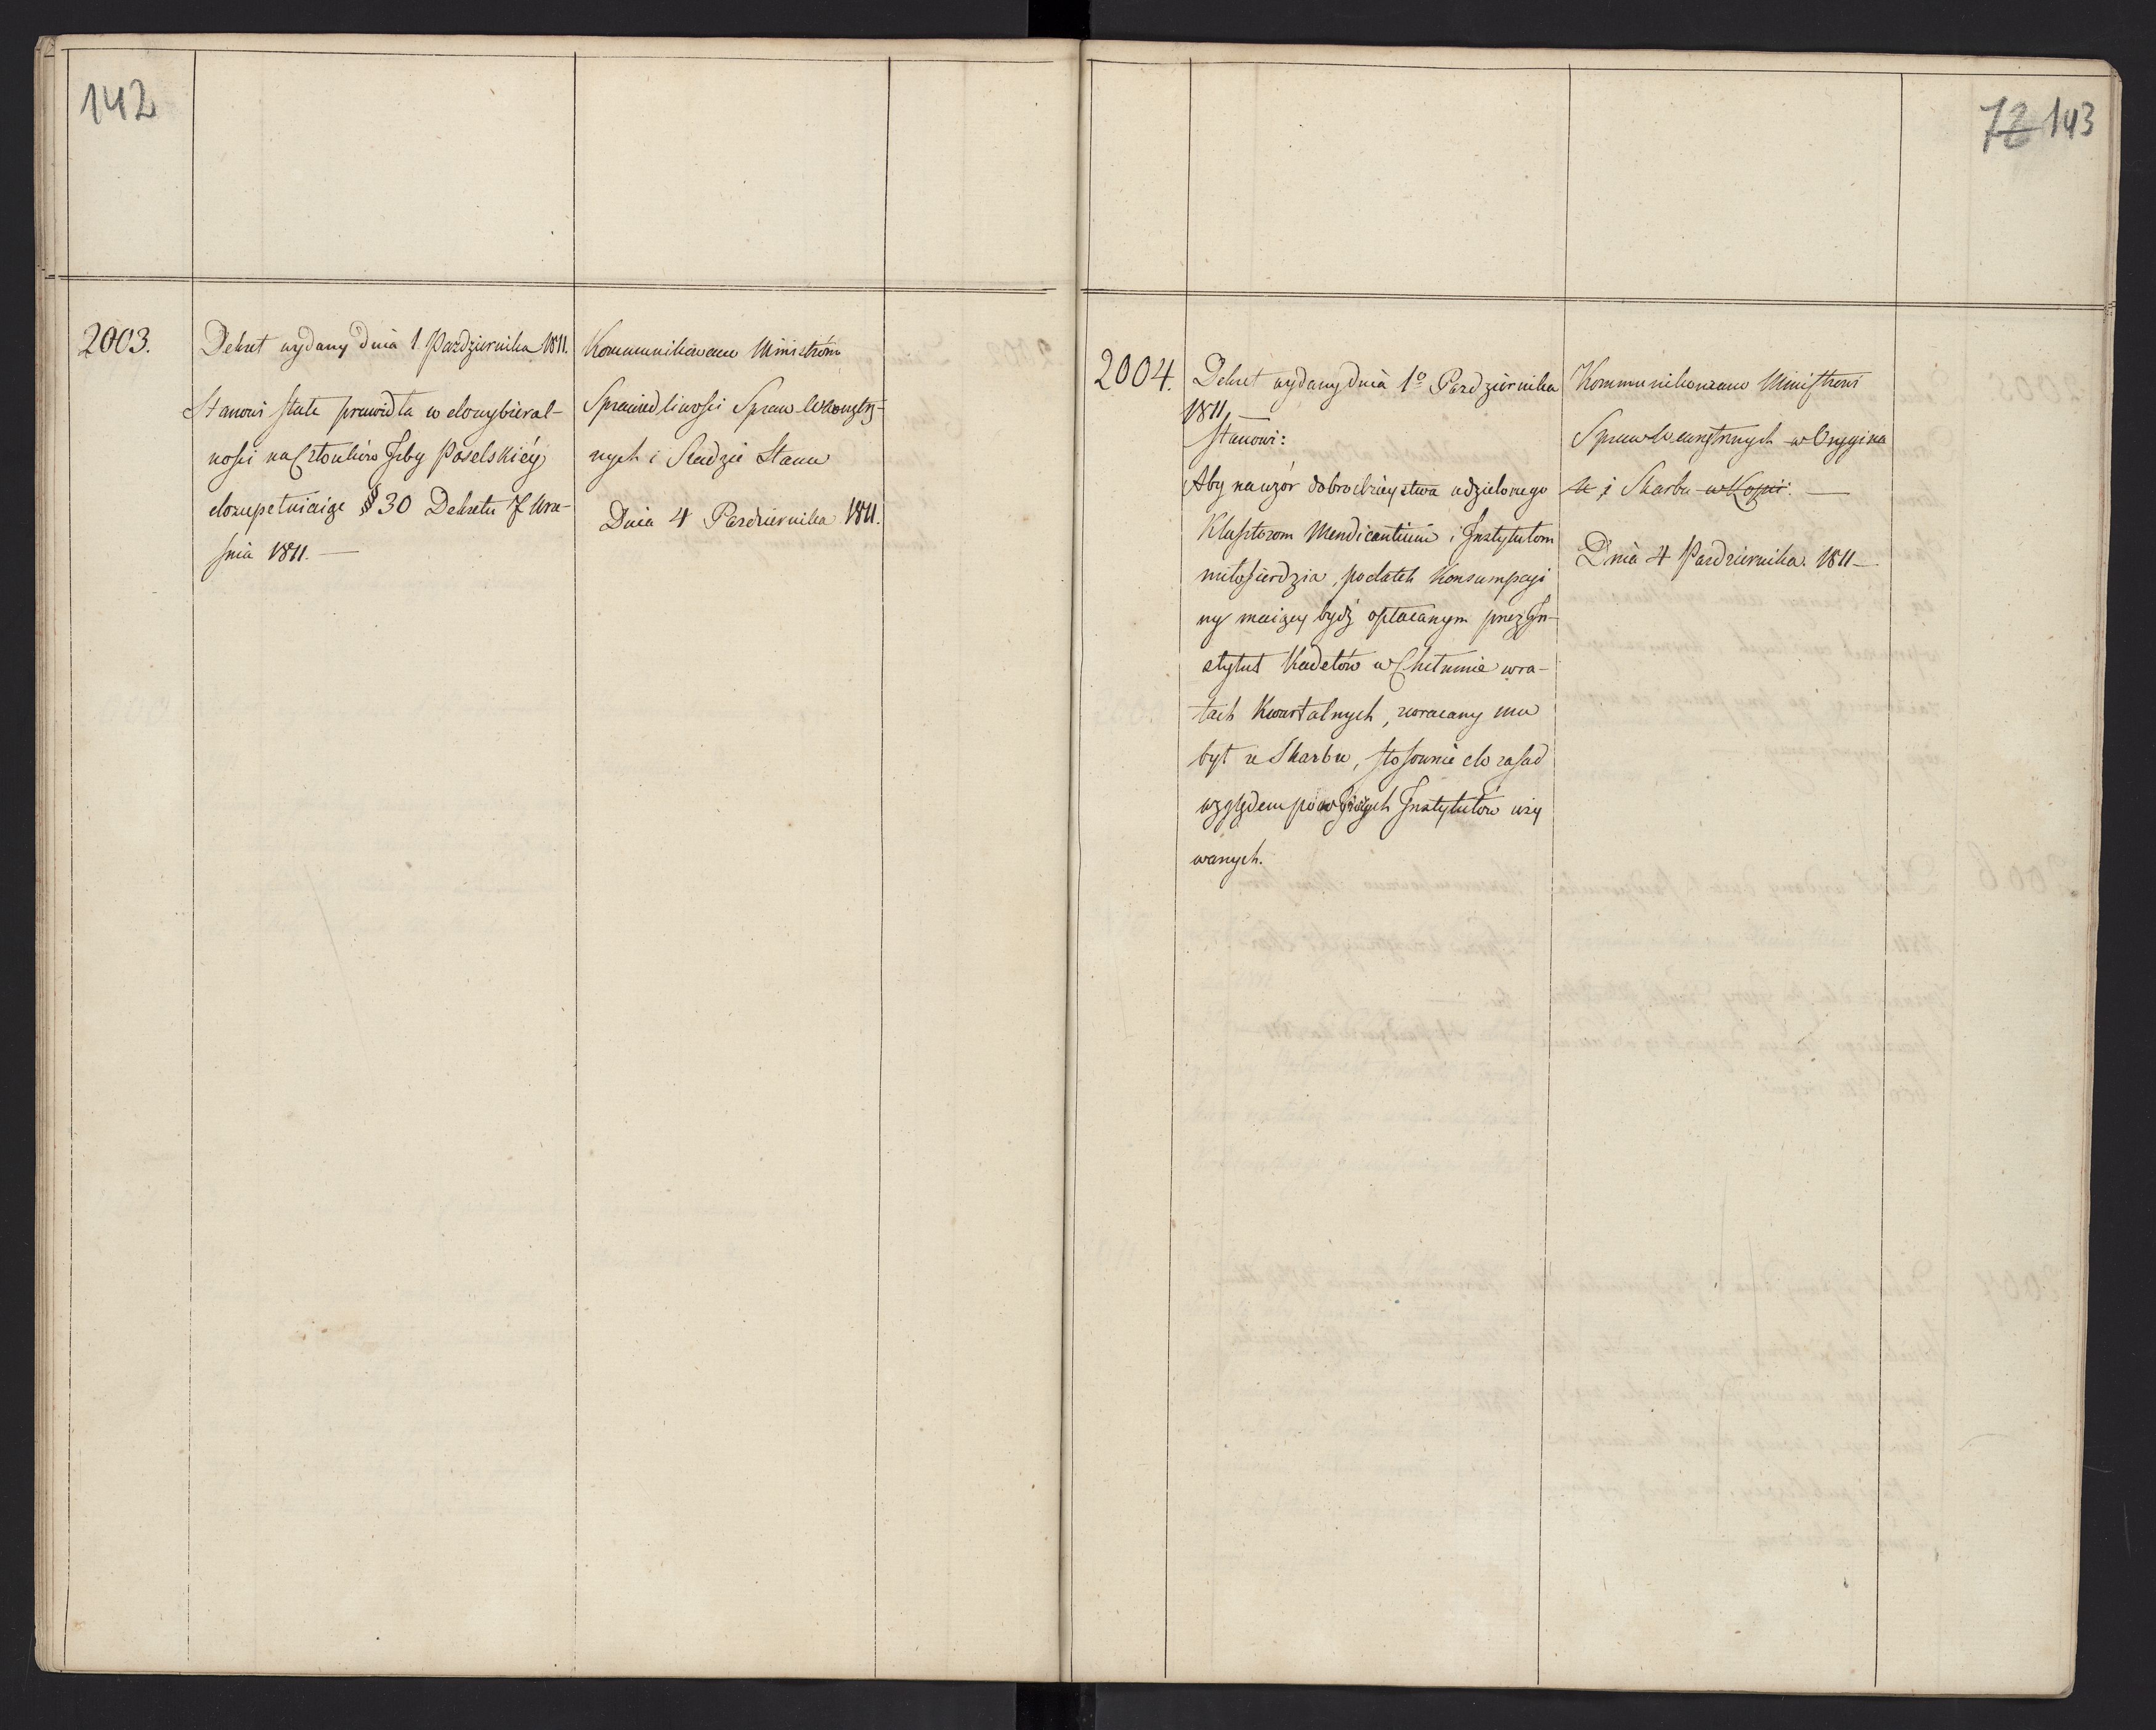 142
2003.
Dekret wydany dnia 1. Października 1811.
Stanowi stałe prawidła w dowybieral-
ności na Członków Izby Poselskiéy
dozupełniaiąc § 30 Dekretu 7 Wrze-
śnia 1811. —
Kommunikowano Ministróm
Sprawiedliwości Spraw Wewnętrz-
nych i Radzie Stanu
Dnia 4 Pazdziernika 1811.
72 143
2004.
Dekret wydany dnia 1º Pazdziernika
1811. —
Stanowi:
Aby na wzór dobrodzieystwa udzielonego
Klasztorom Mendicantium i Instytutom
miłosierdzia, podatek Konsumpcyi
ny maiący bydź opłacanym przez In-
stytut Kadetów w Chełmnie w ra-
tach Kwartalnych, zwracany mu
był ze Skarbu, stosownie do zasad
względem powyższych Instytutów uży
wanych.
Kommunikowano Ministrowi
Spraw Wewnętrznych w Orygina
le i Skarbu w Kopii. —
Dnia 4 Pazdziernika. 1811 —